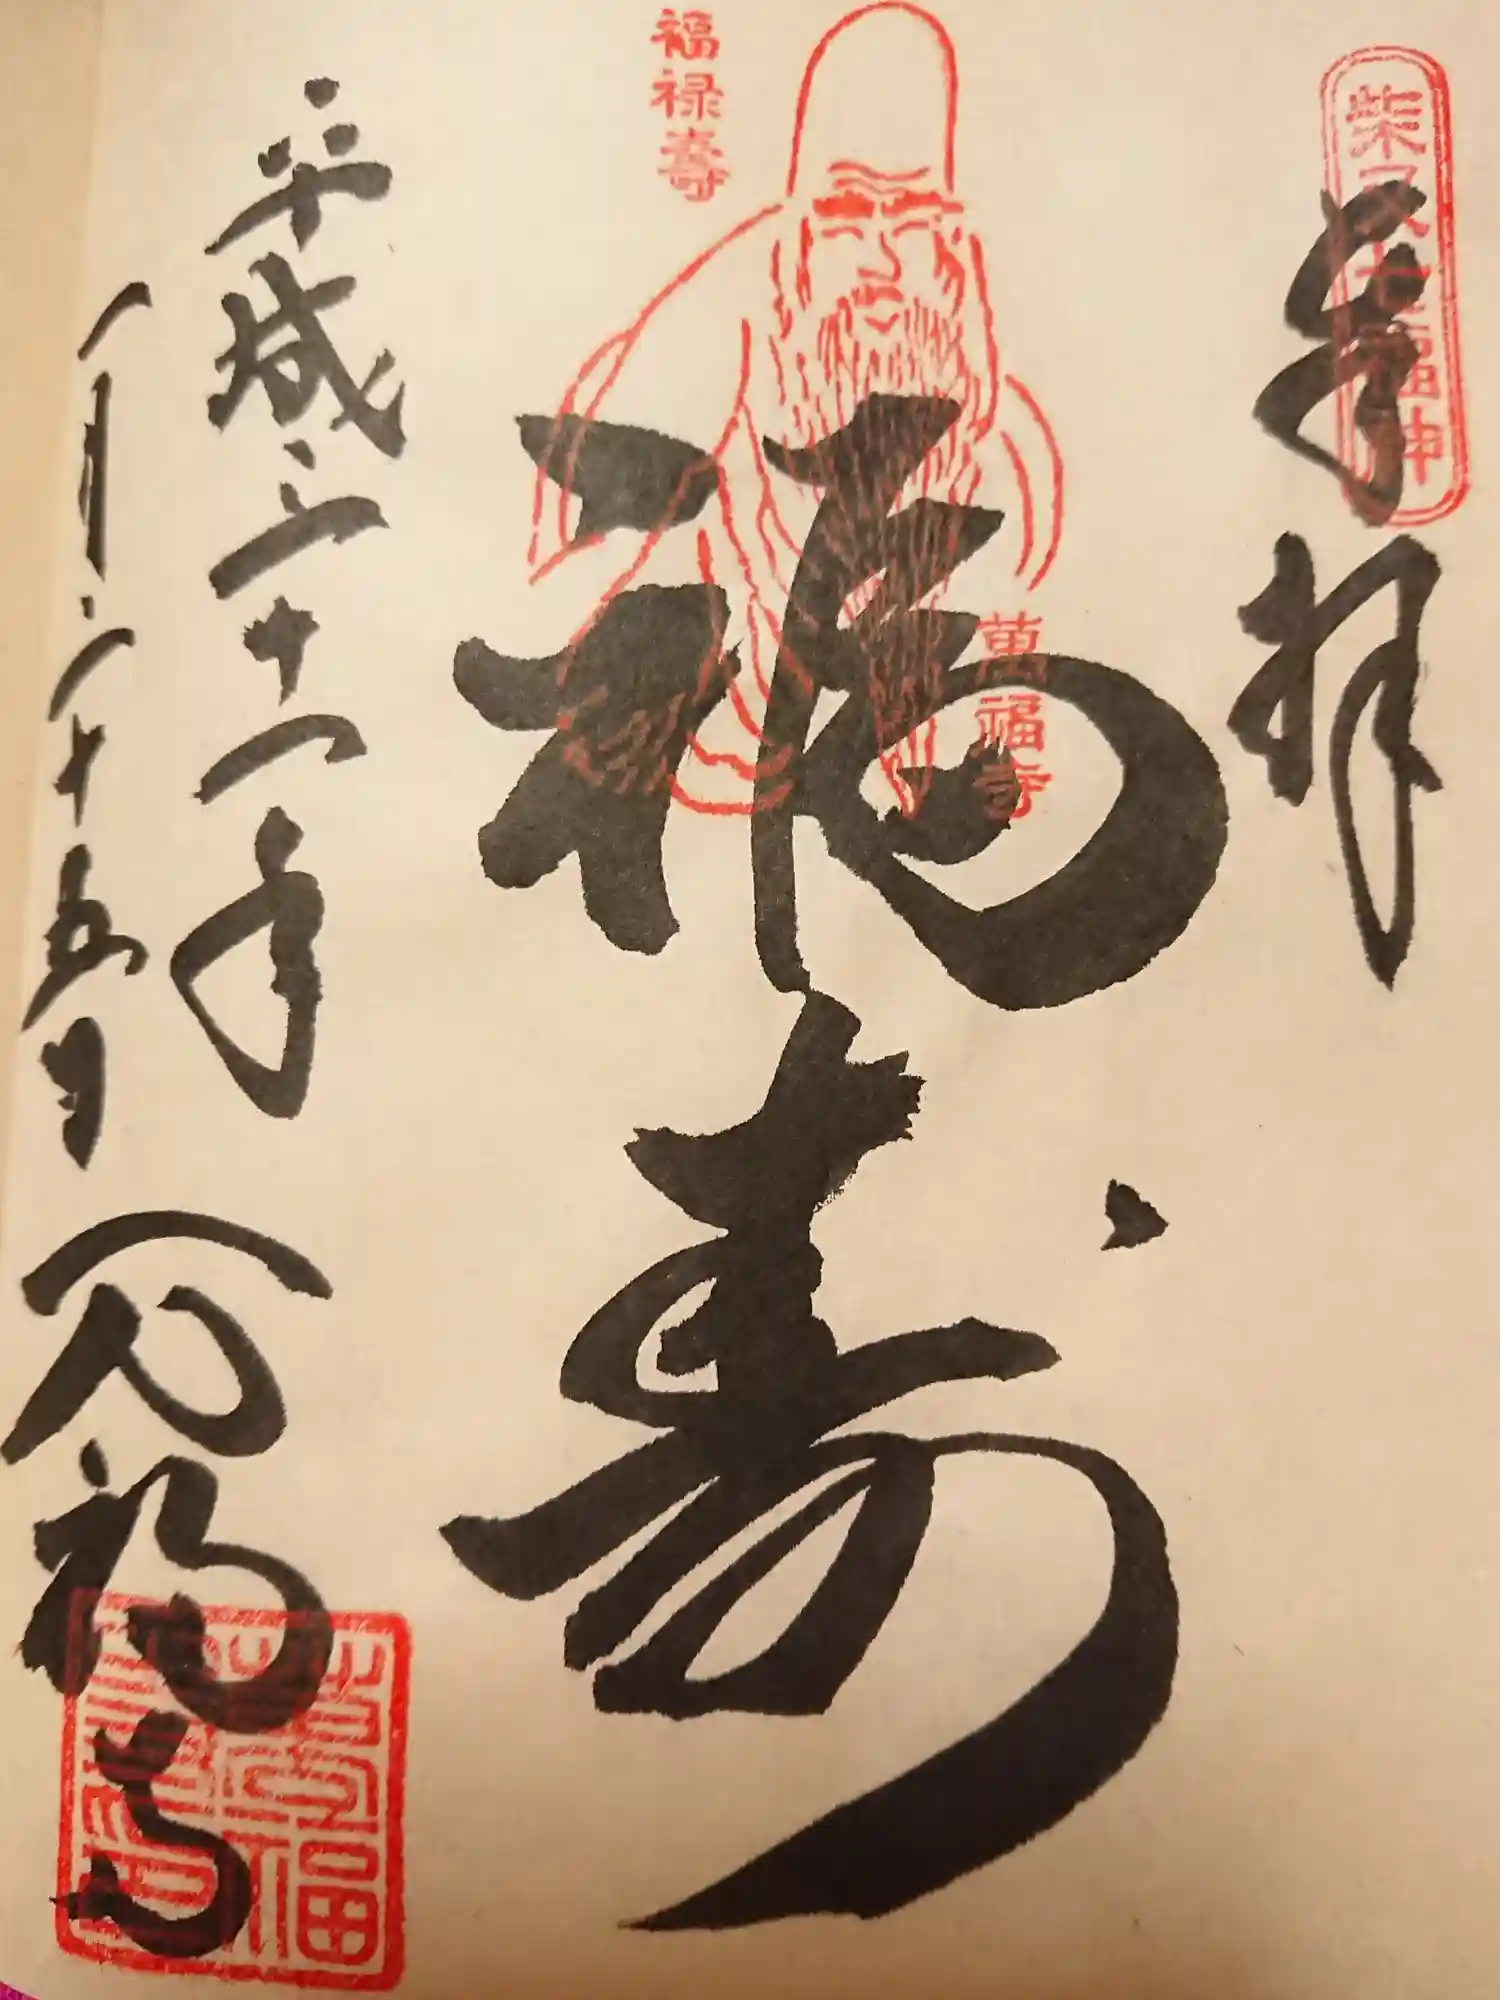 柴又七福神
奉拝
福禄壽
萬福寺
福寿
平成三十一年
一月二十五日
万福寺